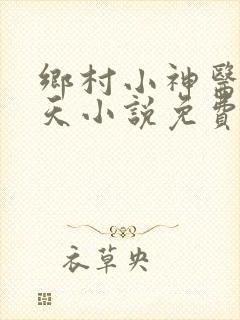 鄉村小神醫
天小說免費
衣草央